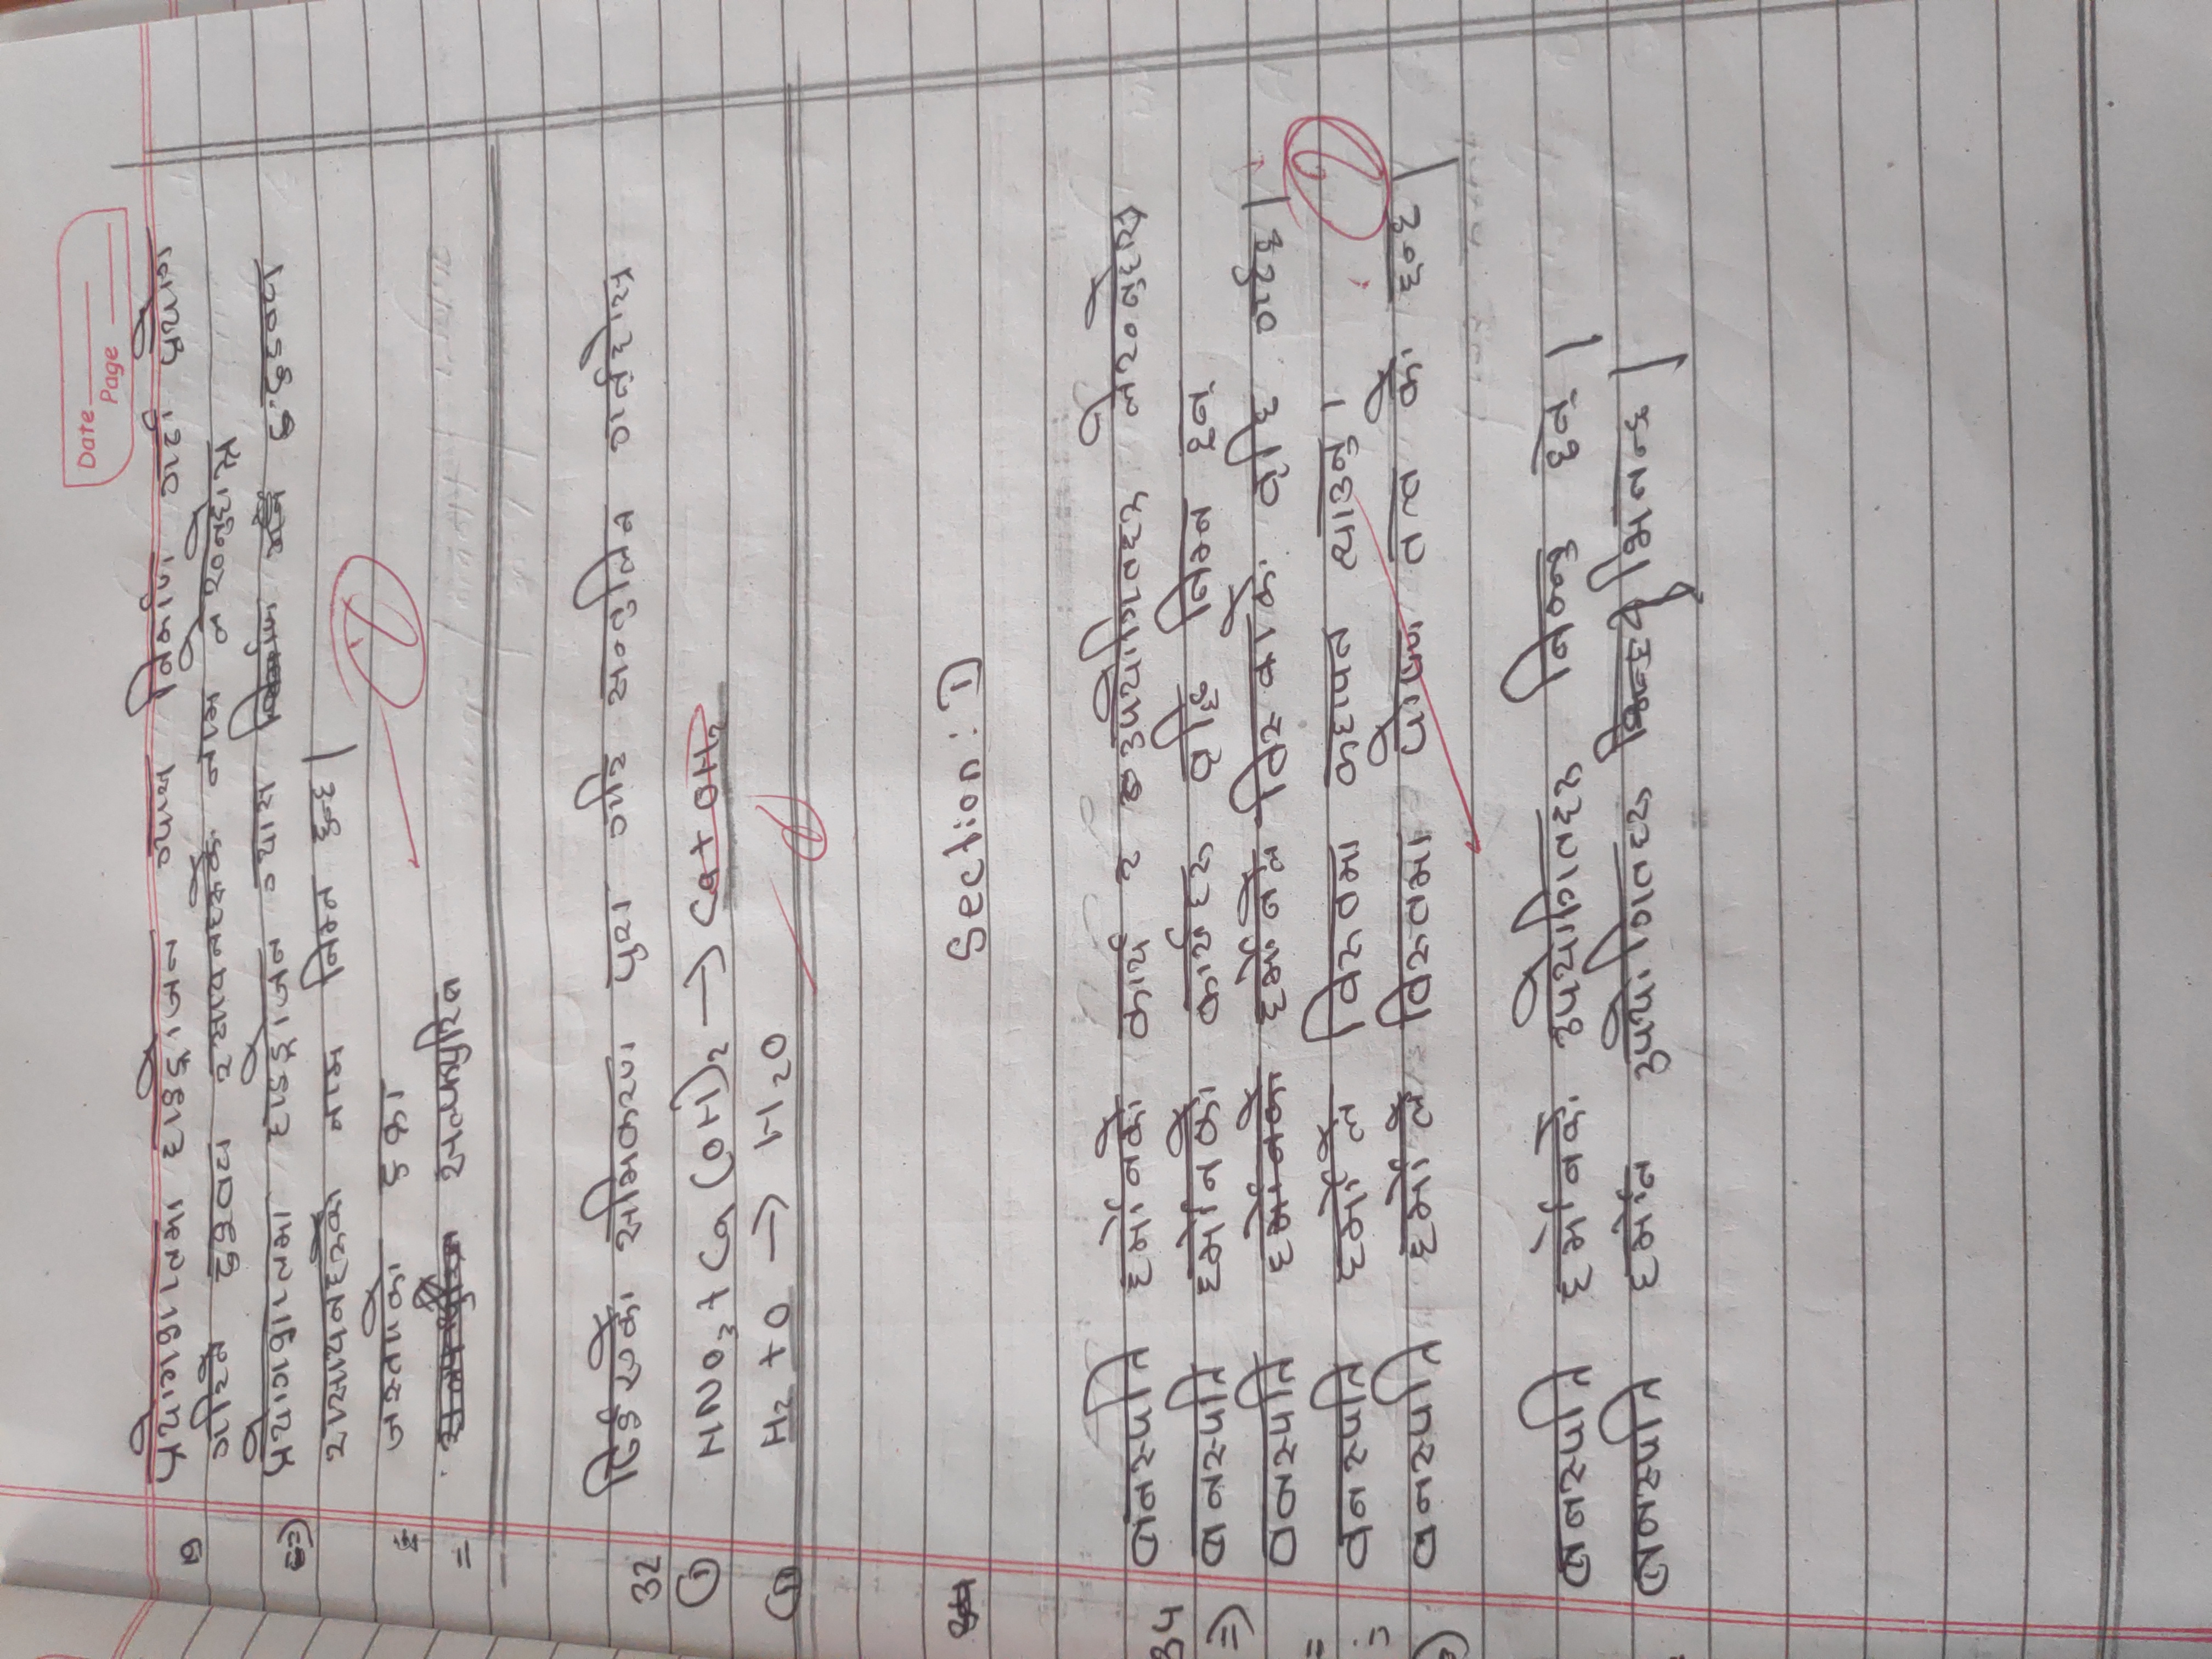 Date
Page
19 प्रयोगशालमा हाइड्रोजन ग्यास निर्माण गर्दा प्रयोग
गरिने दुइवटा रसायनहरुको नाम लेख्नुहोस्
=) प्रयोगशालमा हाइड्रोजन ग्यास दुइवटा
रासायनहरुको नाम निम्न छन्।
= जस्ताको टुक्रा
= सल्फ्युरिक
32 दिईएको समिकरण पुरा गरि सन्तुलित गर्नुहोस्
① HNO3 + Ca (OH)2 → Ca + OH2
② H2 + O → H2O
Section: D
34 वनस्पति हर्मोनको कार्य र उपयोगितहरु लेख्नुहोस्
=) वनस्पति हर्मोनको कार्यहरु वृद्दि निम्न छन्
= वनस्पति हर्मोनले वृद्दि गर्दछ।
वनस्पति हर्मोले विरुवामा ल्याउनु।
वनस्पति हर्मोले विरुवामा पोषण तत्व को हुन्छ।
वनस्पति हर्मोनको उपयोगितहरु निम्न छन्।
वनस्पति हर्मोन उपयोगितहरु भिनन्छ।